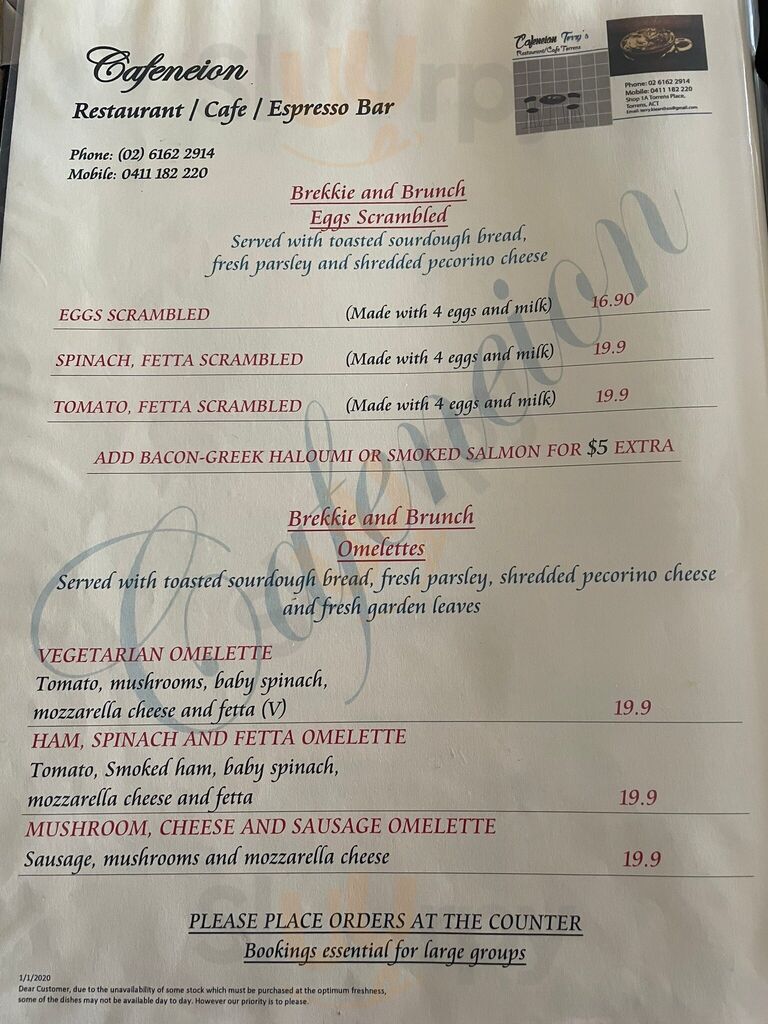 Cafeneion
Restaurant / Cafe / Espresso Bar
Phone: (02) 6162 2914
Mobile: 0411 182 220
Cafeneion Terry's
Restaurant/Cafe Torrens
Phone: 02 6162 2914
Mobile: 0411 182 220
Shop 1A Torrens Place,
Torrens, ACT
Brekkie and Brunch
Eggs Scrambled
Served with toasted sourdough bread,
fresh parsley and shredded pecorino cheese
EGGS SCRAMBLED (Made with 4 eggs and milk) 16.90
SPINACH, FETTA SCRAMBLED (Made with 4 eggs and milk) 19.9
TOMATO, FETTA SCRAMBLED (Made with 4 eggs and milk) 19.9
ADD BACON-GREEK HALOUMI OR SMOKED SALMON FOR $5 EXTRA
Cafeneion
Brekkie and Brunch
Omelettes
Served with toasted sourdough bread, fresh parsley, shredded pecorino cheese
and fresh garden leaves
VEGETARIAN OMELETTE
Tomato, mushrooms, baby spinach,
mozzarella cheese and fetta (V) 19.9
HAM, SPINACH AND FETTA OMELETTE
Tomato, Smoked ham, baby spinach,
mozzarella cheese and fetta 19.9
MUSHROOM, CHEESE AND SAUSAGE OMELETTE
Sausage, mushrooms and mozzarella cheese 19.9
PLEASE PLACE ORDERS AT THE COUNTER
Bookings essential for large groups
1/1/2020
Dear Customer, due to the unavailability of some stock which must be purchased at the optimum freshness,
some of the dishes may not be available day to day. However our priority is to please.